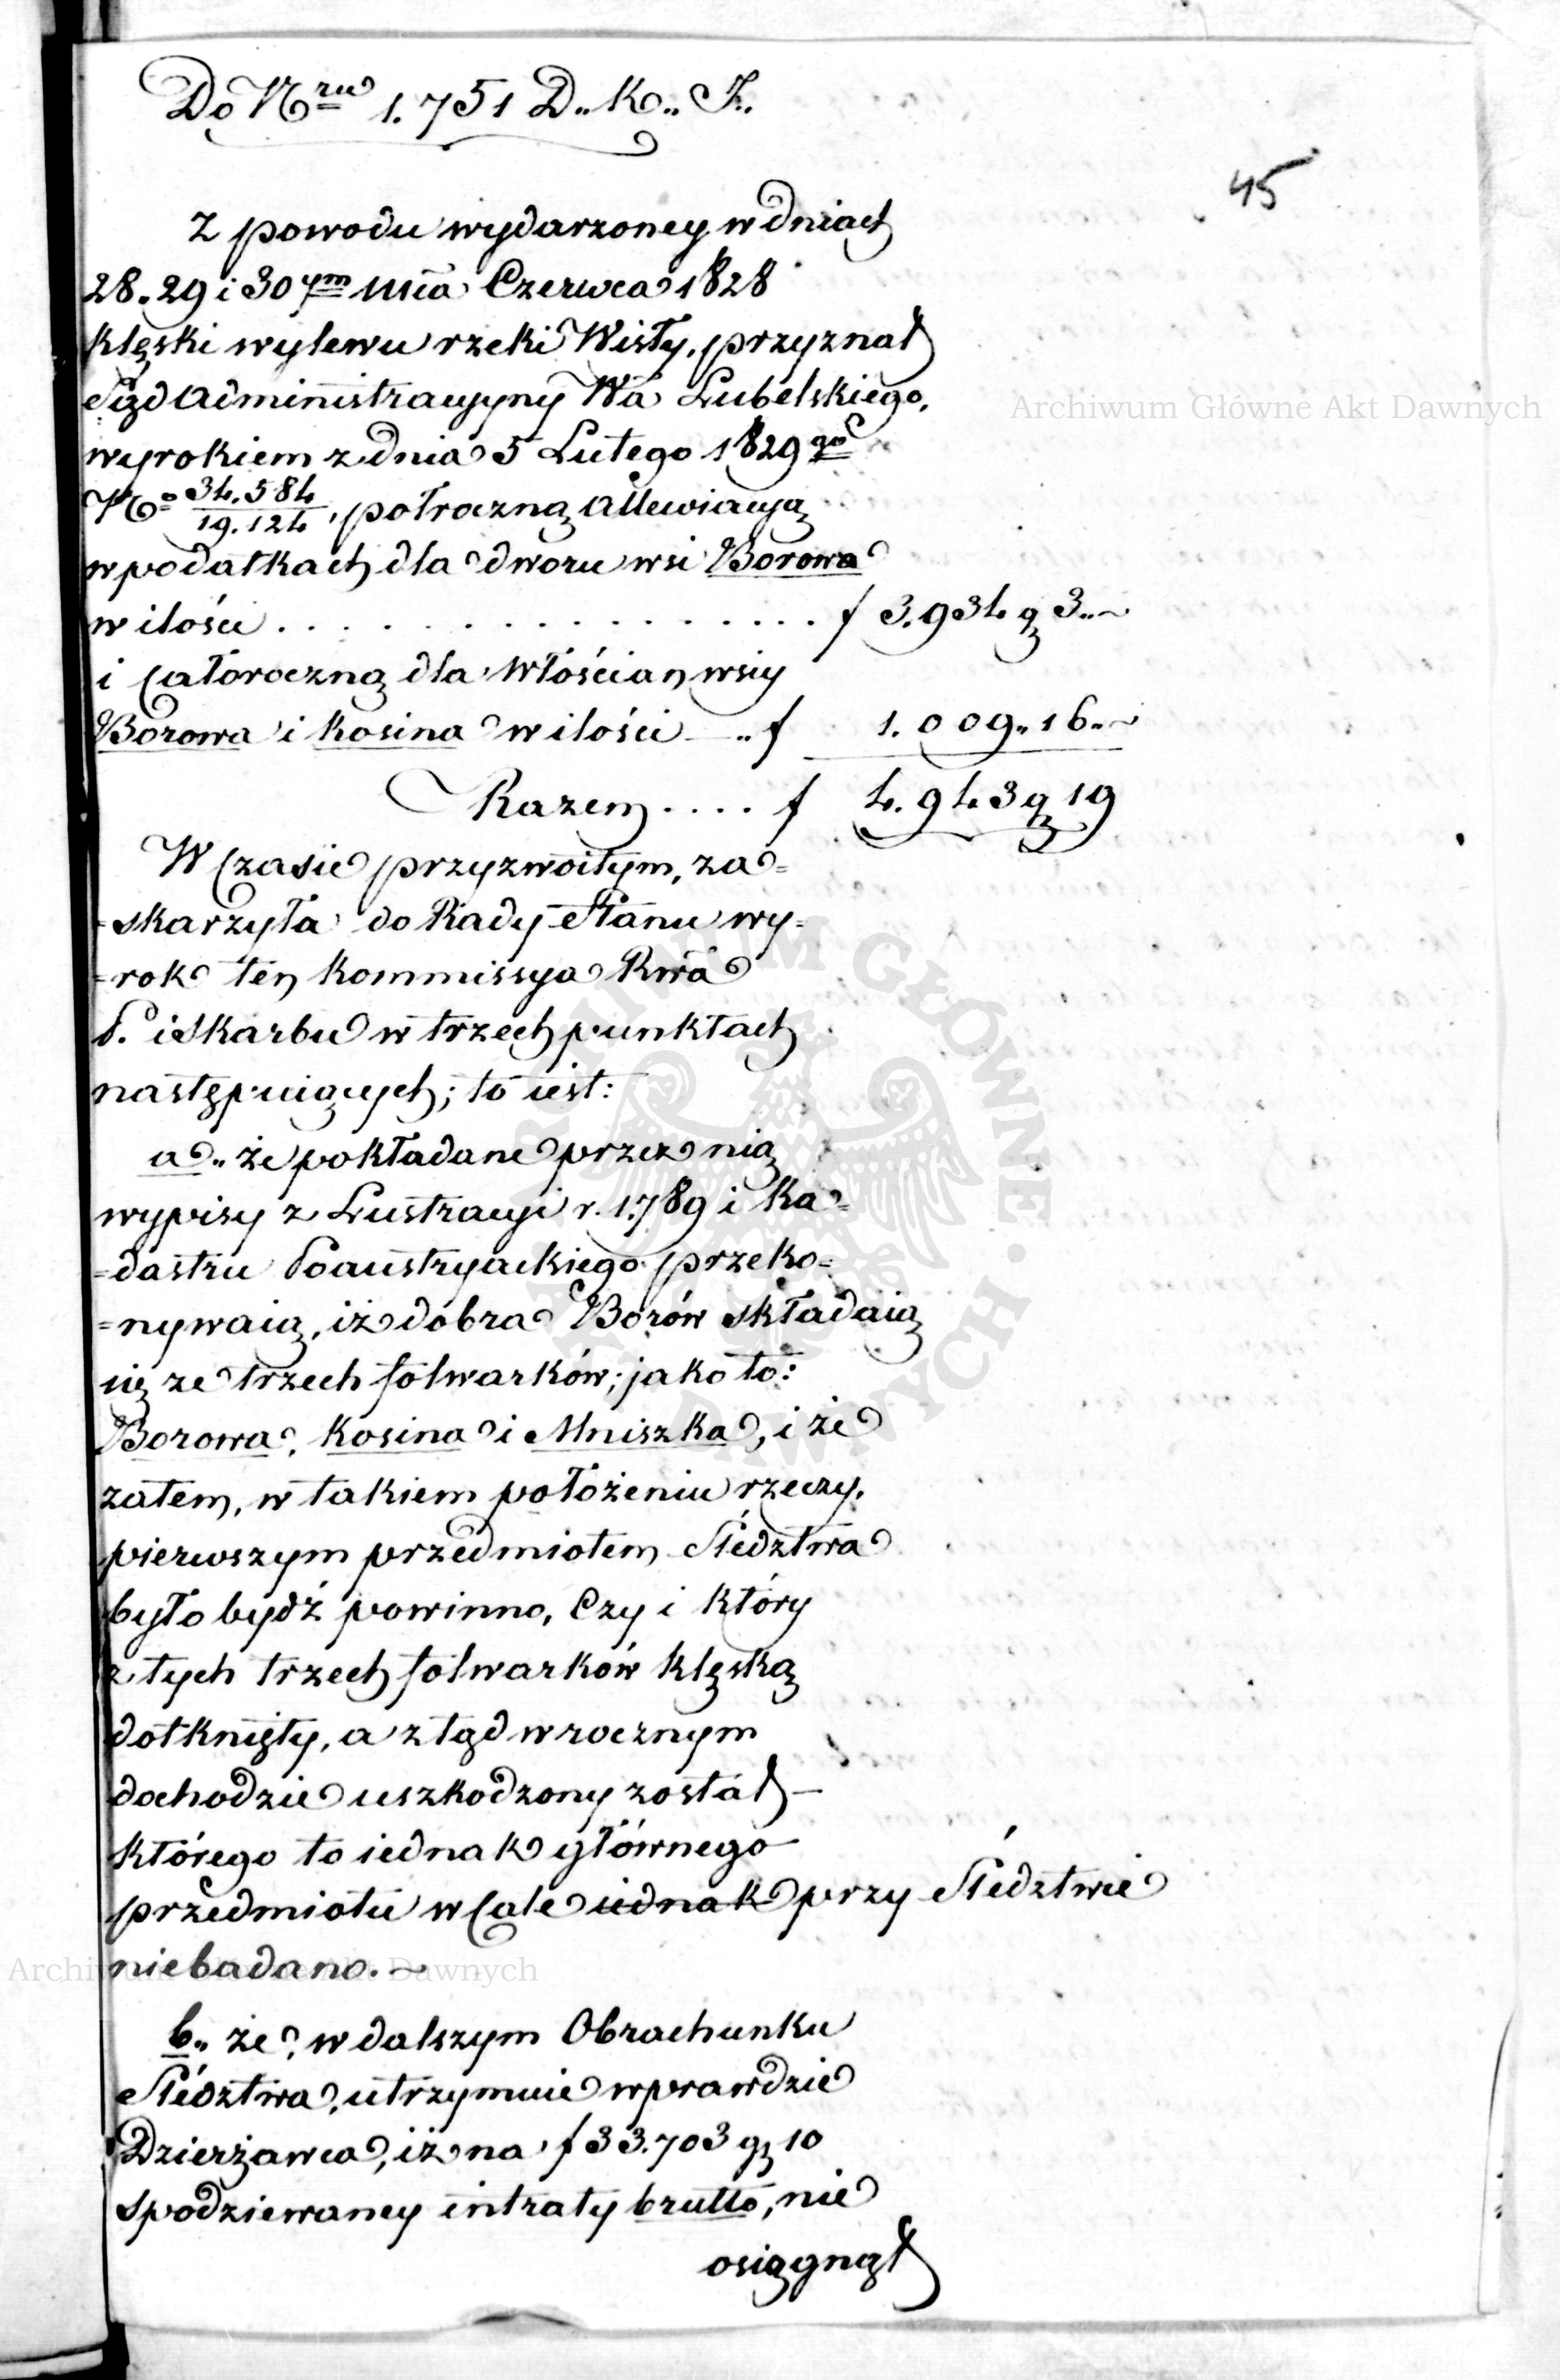 Do Nru 1.751 D.. K.. J..
45
Z powodu wydarzoney w dniach
28. 29 i 30ym mca Czerwca 1828
klęski wylewu rzeki Wisły, przyznał
Sąd Administracyjny Wa Lubelskiego,
wyrokiem z dnia 5 Lutego 1829 go
No 34.584/19.124, połroczną allewiacyą
w podatkach dla dworu wsi Borowa
w ilości . . . . . . . . . . . . . . . . . f 3.934 g 3..~
i całoroczną dla włościan wsiy
Borowa i Kosina w ilości — .. f 1.009.. 16..~
Razem . . . . f 4.943 g 19
W czasie przyzwoitym, za=
=skarzyła do Rady Stanu wy=
=rok ten Kommissya Rwa
P. i Skarbu w trzech punktach
następuiących; to iest:
a.. że pokładane przez nią
wypisy z Lustracyi r. 1.789 i Ka=
=dastru Poaustryackiego przeko=
=nywaią, iż dobra Borów składaią
się ze trzech folwarków; jako to:
Borowa, Kosina i Mniszka, i że
zatem, w takiem położeniu rzeczy,
pierwszym przedmiotem Śledztwa
było bydź powinno, Czy i który
z tych trzech folwarków klęską
dotknięty, a ztąd w rocznym
dochodzie uszkodzony został —
którego to iednak głównego
przedmiotu wcale iednak przy Śledztwie
niebadano. ~
b.. że, w dalszym Obrachunku
Śledztwa, utrzymuie wprawdzie
Dzierżawca, iż na f 33.703 g 10
spodziewaney intraty brutto, nie
osiągnął
Archiwum Główne Akt Dawnych
Archiwum Główne Akt Dawnych
ARCHIWUM GŁÓWNE AKT DAWNYCH